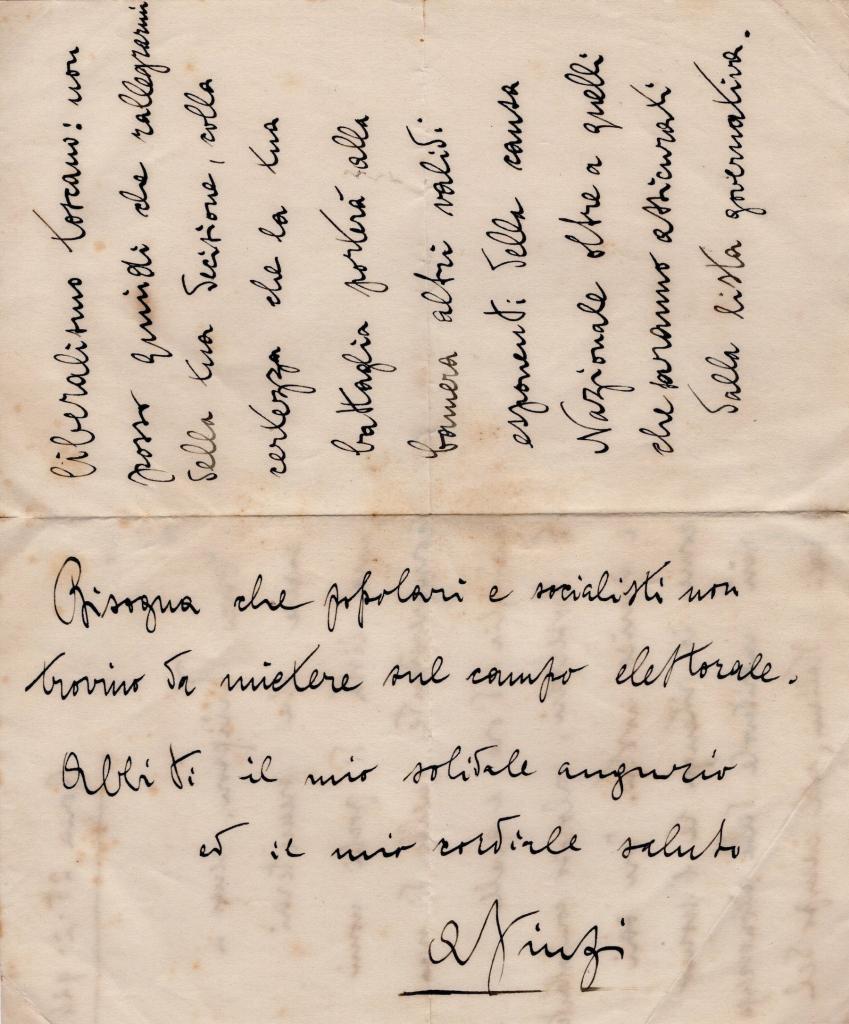 liberalismo toscano: non
posso quindi che rallegrarmi
della tua decisione, colla
certezza che la tua
battaglia porterà alla
Camera altri validi
esponenti della causa
Nazionale oltre a quelli
che saranno assicurati
dalla lista governativa.
Bisogna che popolari e socialisti non
trovino da mietere sul campo elettorale.
Abbiti il mio solidale augurio
ed il mio cordiale saluto